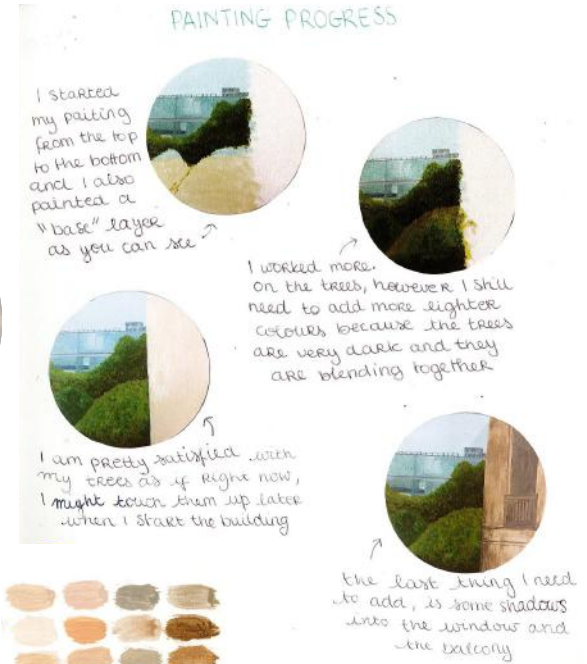 PAINTING PROGRESS
I started
my paiting
from the top
to the bottom
and I also
painted a
"base" layer
as you can see
I worked more.
on the trees, however I still
need to add more lighter
colours because the trees
are very dark and they
are blending together
I am pretty satisfied with
my trees as if right now,
I might touch them up later
when I start the building
the last thing I need
to add, is some shadows
into the window and
the balcony